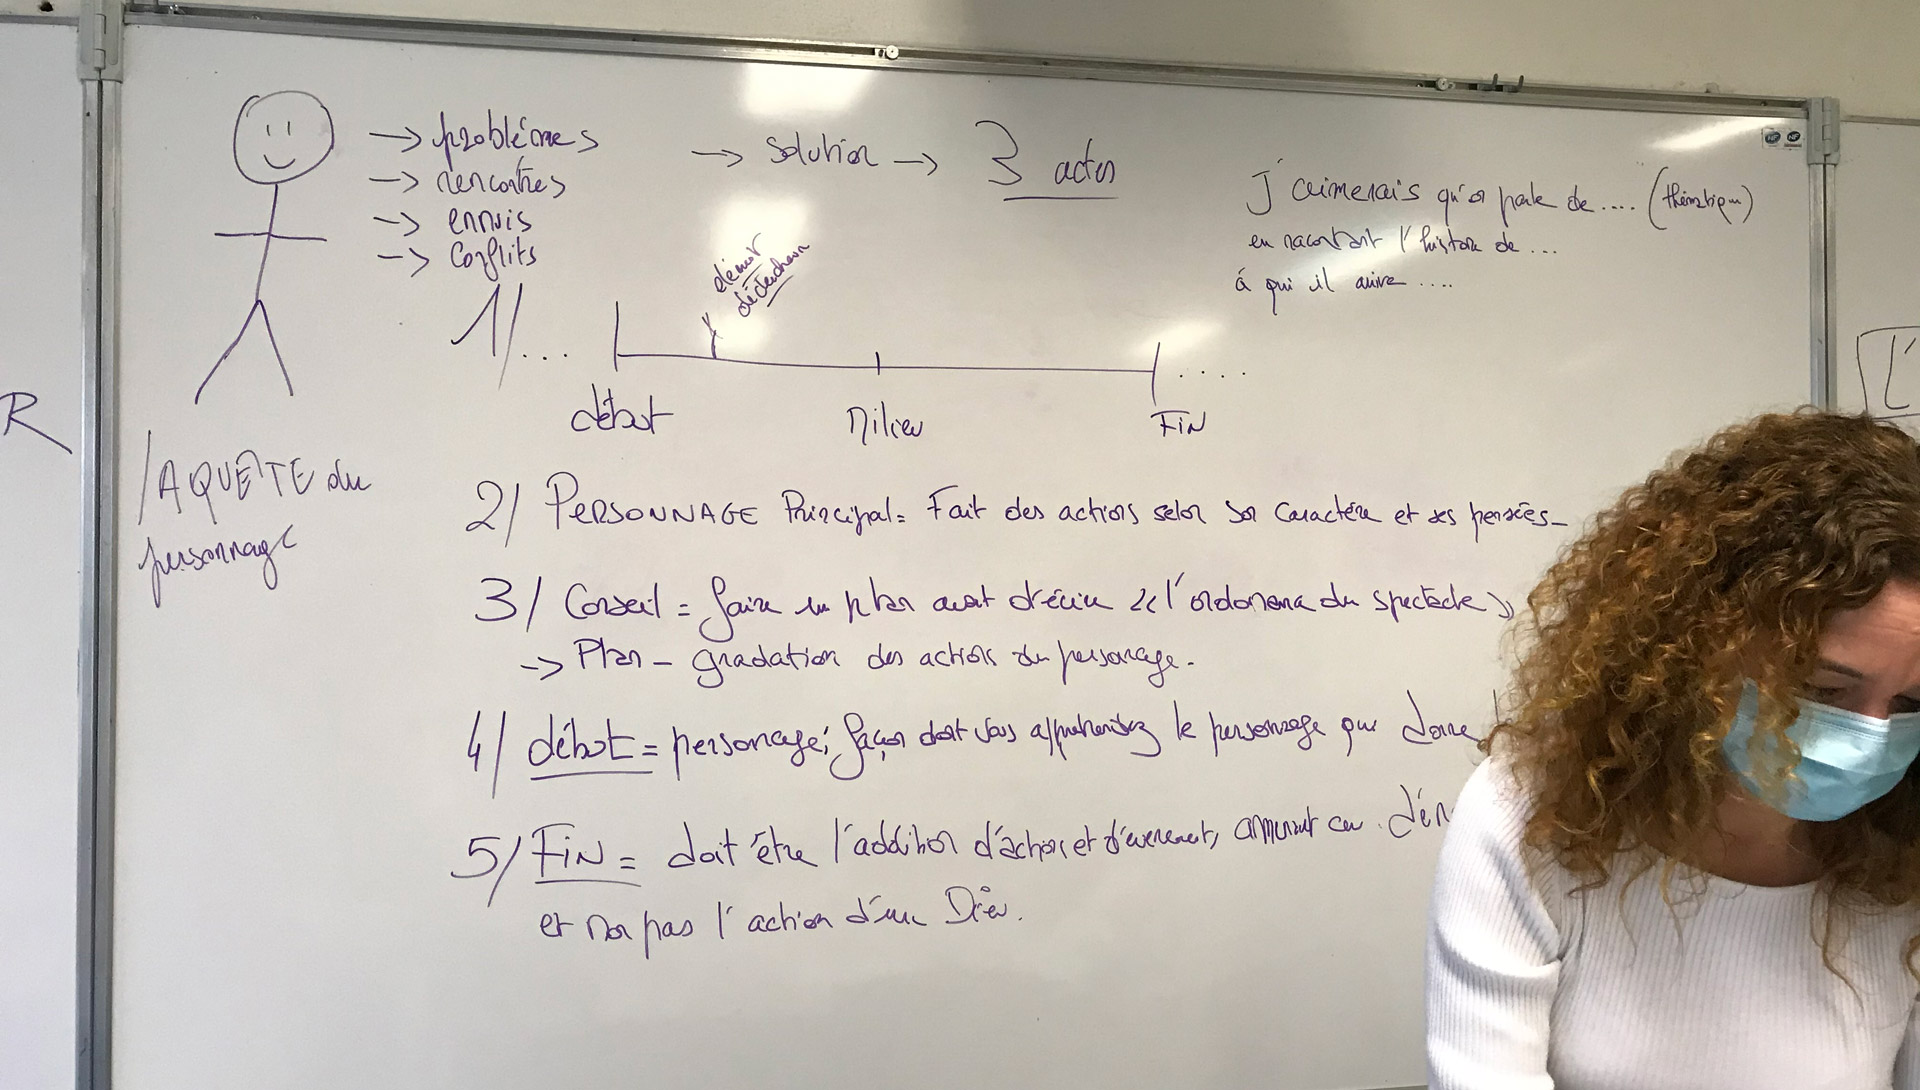 → problèmes → solution → 3 actes
→ rencontres
→ ennuis
→ Conflits
J'aimerais qu'on parle de .... (thématique)
en racontant l'histoire de ...
à qui il arrive ....
élément
déclencheur
1/ ...
début Milieu FiN
LA QUÊTE du
personnage
2/ PERSONNAGE Principal = Fait des actions selon son caractère et ses pensées_
3/ Conseil = faire un plan avant d'écrire « l'ordonnance du spectacle »
→ Plan - gradation des actions du personnage.
4/ début = personnage; façon dont vous appréhendez le personnage qui donne
5/ FiN = doit être l'addition d'actions et d'évènements, amenant au
et non pas l'action d'un Dieu.
R
L'